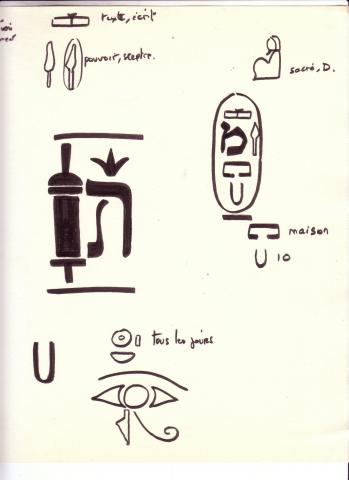 texte, écrit
pouvoir, sceptre.
sacré, D.
מ
maison
10
ת
tous les jours